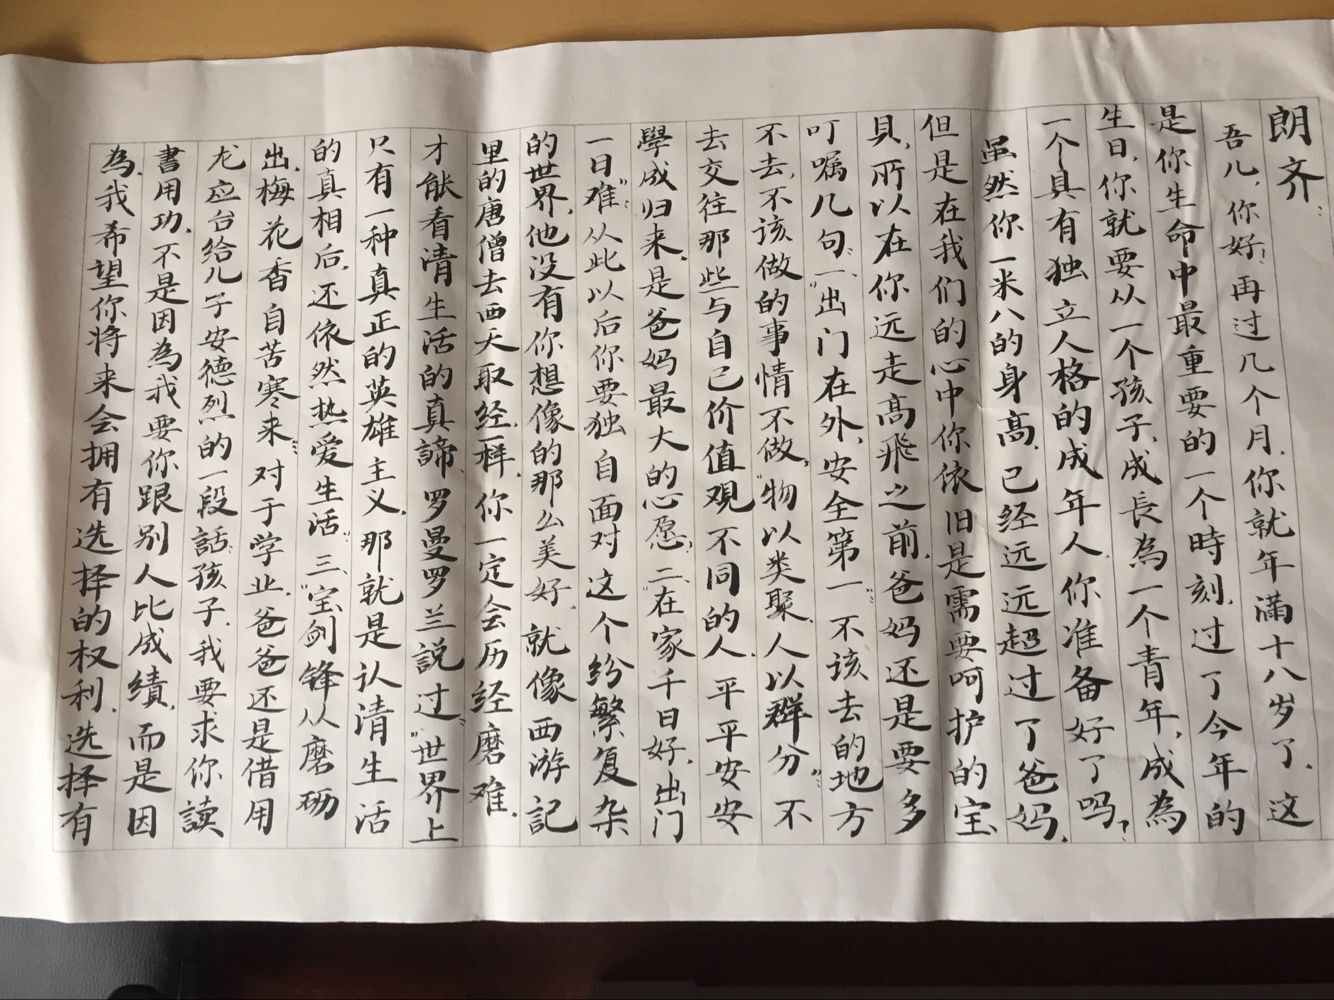 朗齐：
吾儿，你好！再过几个月，你就年满十八岁了，这
是你生命中最重要的一个時刻，过了今年的
生日，你就要从一个孩子，成長為一个青年，成為
一个具有独立人格的成年人，你准备好了吗？
虽然你一米八的身高，已经远远超过了爸妈，
但是在我们的心中你依旧是需要呵护的宝
貝，所以在你远走高飛之前，爸妈还是要多
叮嘱几句：一、“出门在外，安全第一”，不该去的地方
不去，不该做的事情不做，“物以类聚，人以群分”，不
去交往那些与自己价值觀不同的人，平平安安
學成归来，是爸妈最大的心愿；二、“在家千日好，出门
一日难”，从此以后你要独自面对这个纷繁复杂
的世界，他没有你想像的那么美好，就像西游記
里的唐僧去西天取经一样，你一定会历经磨难，
才能看清生活的真諦，罗曼罗兰説过：“世界上
只有一种真正的英雄主义，那就是认清生活
的真相后，还依然热爱生活”；三、“宝剑锋从磨砺
出，梅花香自苦寒来”，对于学业，爸爸还是借用
龙应台给儿子安德烈的一段話：孩子，我要求你读
書用功，不是因為我要你跟别人比成績，而是因
為，我希望你将来会拥有选择的权利，选择有